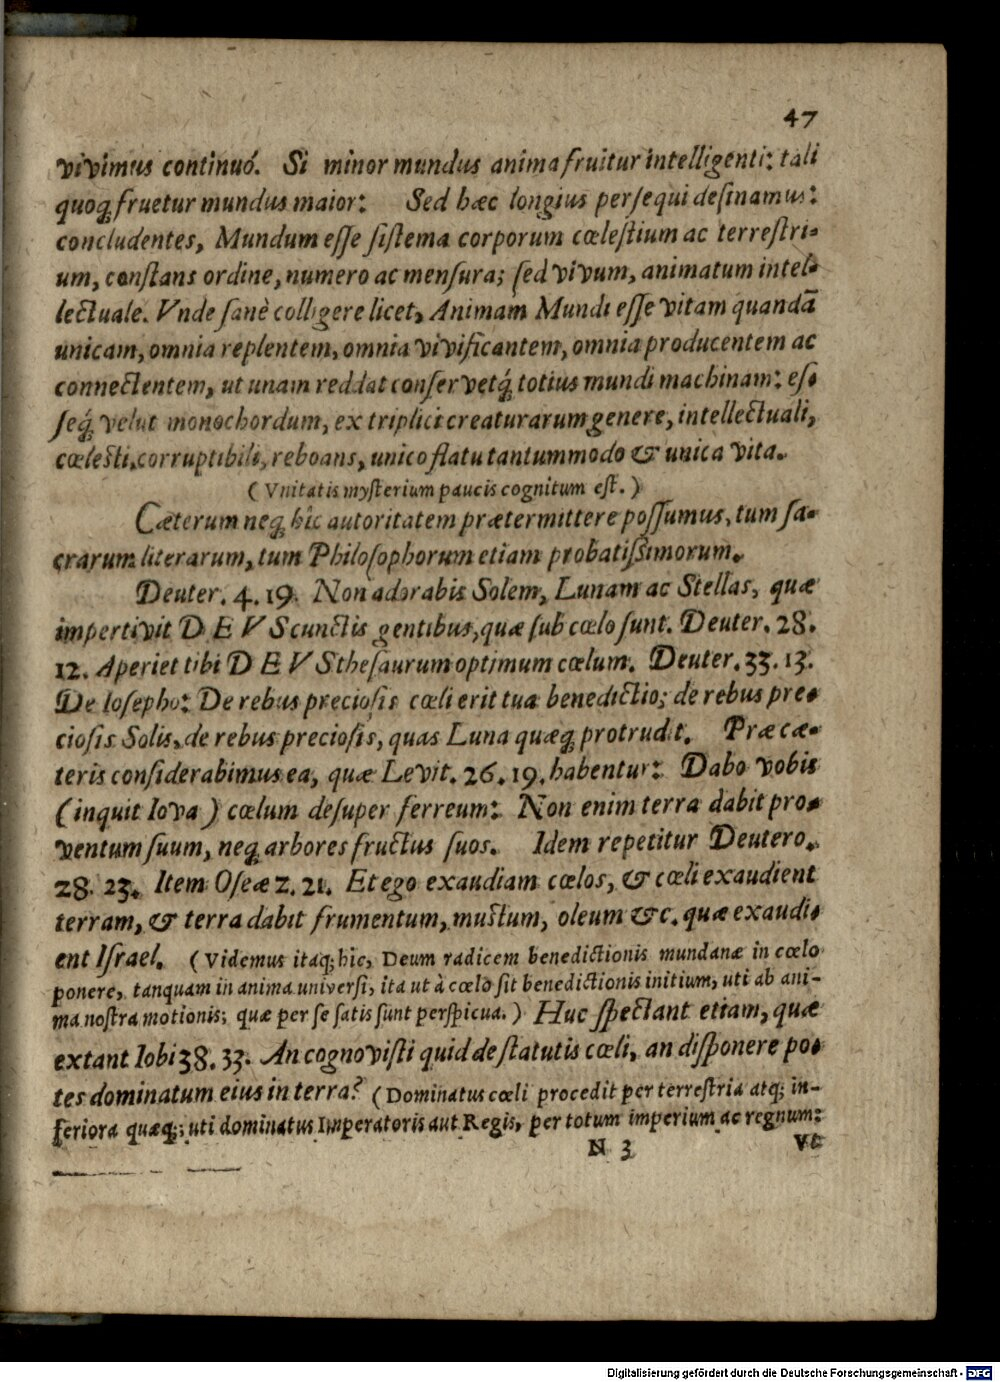 47
vivimus continuó. Si minor mundus anima fruitur intelligenti: tali
quoq́ fruetur mundus maior: Sed hæc longius persequi desinamus:
concludentes, Mundum esse sistema corporum cœlestium ac terrestri-
um, constans ordine, numero ac mensura; sed vivum, animatum intel-
lectuale. Vnde sanè colligere licet, Animam Mundi esse vitam quandā
unicam, omnia replentem, omnia vivificantem, omnia producentem ac
connectentem, ut unam reddat conservetq́; totius mundi machinam: es-
seq́; velut monochordum, ex triplici creaturarum genere, intellectuali,
cœlesti, corruptibili, reboans, unico flatu tantummodo & unica vita.
(Vnitatis mysterium paucis cognitum est.)
Cæterum neq; hîc autoritatem prætermittere possumus, tum sa-
crarum literarum, tum Philosophorum etiam probatissimorum.
Deuter. 4. 19. Non adorabis Solem, Lunam ac Stellas, quæ
impertivit DEVS cunctis gentibus, quæ sub cœlo sunt. Deuter. 28.
12. Aperiet tibi DEVS thesaurum optimum cœlum. Deuter. 33. 13.
De Iosepho: De rebus preciosis cœli erit tua benedictio; de rebus pre-
ciosis Solis, de rebus preciosis, quas Luna quæq; protrudit. Præ cæ-
teris considerabimus ea, quæ Levit. 26. 19. habentur: Dabo vobis
(inquit Iova) cœlum desuper ferreum: Non enim terra dabit pro-
ventum suum, neq; arbores fructus suos. Idem repetitur Deutero.
28. 23. Item Oseæ 2. 21. Et ego exaudiam cœlos, & cœli exaudient
terram, & terra dabit frumentum, mustum, oleum &c. quæ exaudi-
ent Israel. (Videmus itaq; hîc, Deum radicem benedictionis mundanæ in cœlo
ponere, tanquam in anima universi, ita ut à cœlo sit benedictionis initium, uti ab ani-
ma nostra motionis; quæ per se satis sunt perspicua.) Huc spectant etiam, quæ
extant Iobi 38. 33. An cognovisti quid de statutis cœli, an disponere po-
tes dominatum eius in terra? (Dominatus cœli procedit per terrestria atq; in-
feriora quæq;: uti dominatus Imperatoris aut Regis, per totum imperium ac regnum:
N 3 Vt
Digitalisierung gefördert durch die Deutsche Forschungsgemeinschaft - DFG